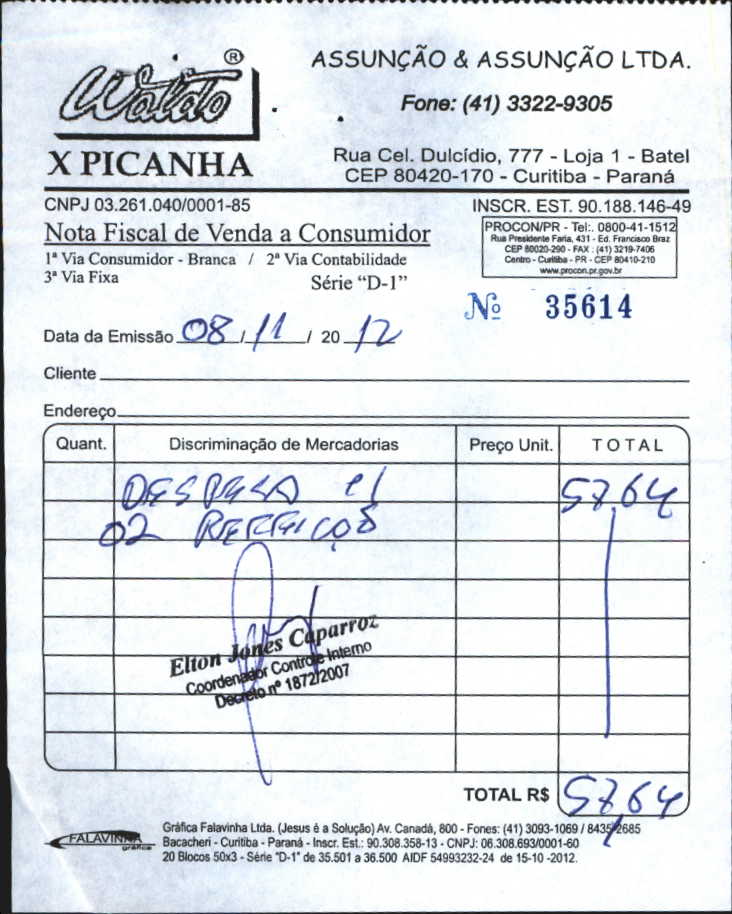 Waldo ®
X PICANHA
ASSUNÇÃO & ASSUNÇÃO LTDA.
Fone: (41) 3322-9305
Rua Cel. Dulcídio, 777 - Loja 1 - Batel
CEP 80420-170 - Curitiba - Paraná
CNPJ 03.261.040/0001-85
INSCR. EST. 90.188.146-49
Nota Fiscal de Venda a Consumidor
1ª Via Consumidor - Branca / 2ª Via Contabilidade
3ª Via Fixa
Série “D-1”
PROCON/PR - Tel:. 0800-41-1512
Rua Presidente Faria, 431 - Ed. Francisco Braz
CEP 80020-290 - FAX : (41) 3219-7406
Centro - Curitiba - PR - CEP 80410-210
www.procon.pr.gov.br
Nº 35614
Data da Emissão 08 / 11 / 20 12
Cliente
Endereço
Quant. Discriminação de Mercadorias Preço Unit. TOTAL
DESPESA c/ 57,64
02 REFEIÇÕS
Elton Jones Caparroz
Coordenador Controle Interno
Decreto nº 1872/2007
TOTAL R$ 57,64
FALAVINHA
gráfica
Gráfica Falavinha Ltda. (Jesus é a Solução) Av. Canadá, 800 - Fones: (41) 3093-1069 / 8435-2685
Bacacheri - Curitiba - Paraná - Inscr. Est.: 90.308.358-13 - CNPJ: 06.308.693/0001-60
20 Blocos 50x3 - Série "D-1" de 35.501 a 36.500 AIDF 54993232-24 de 15-10 -2012.